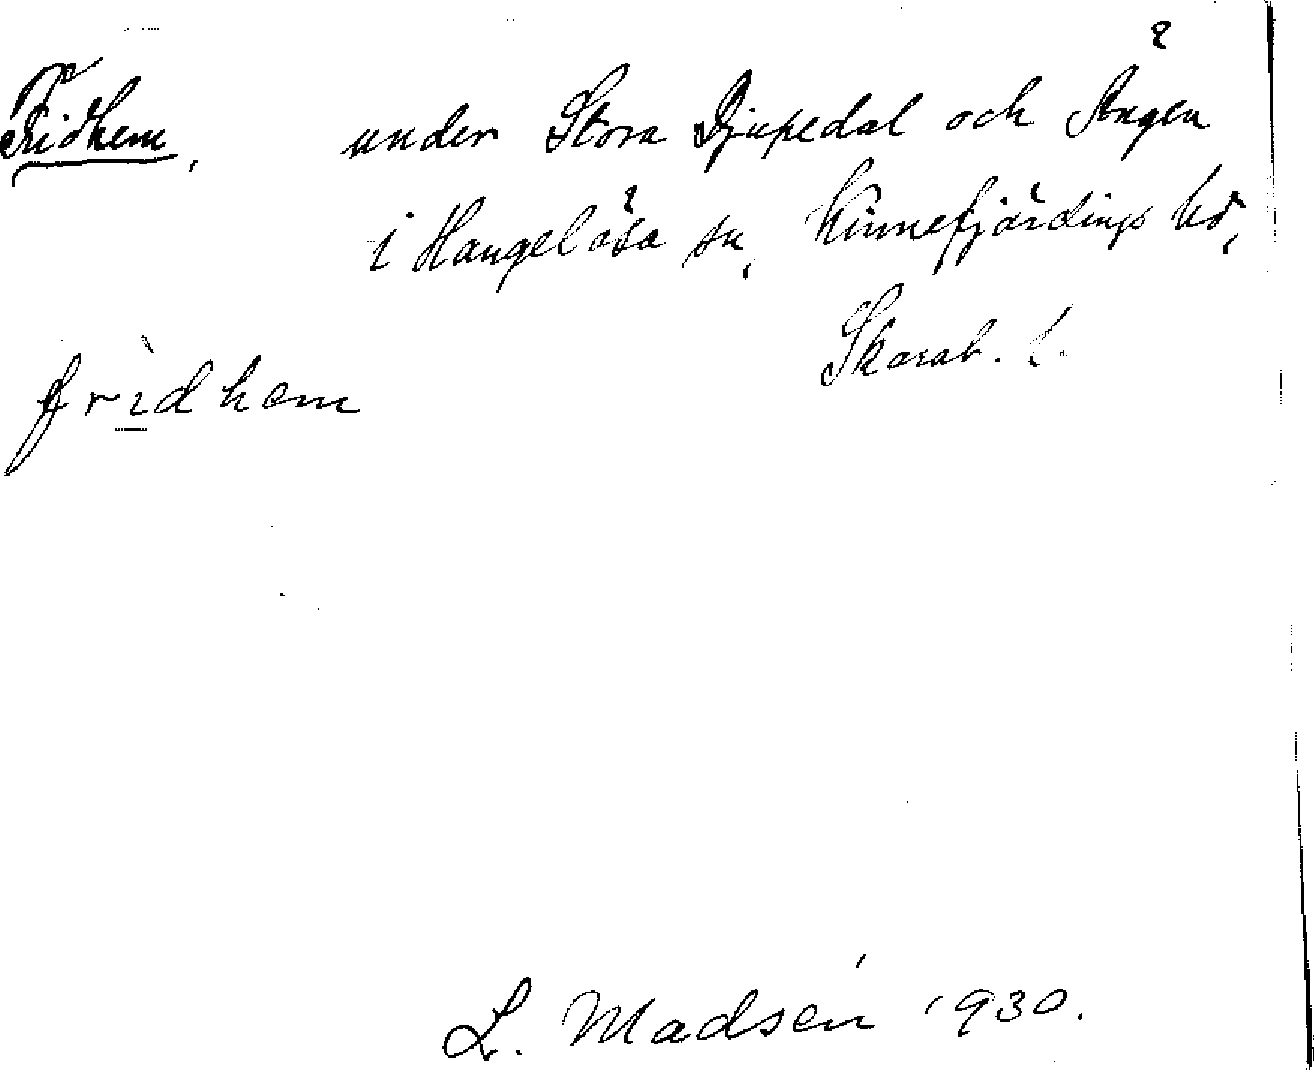 Fridhem, under Stora Djupedal och Ängen
i Hangelösa sn, Kinnefjärdings hd,
Skarab. l.
fridhem
L. Madsén 1930.